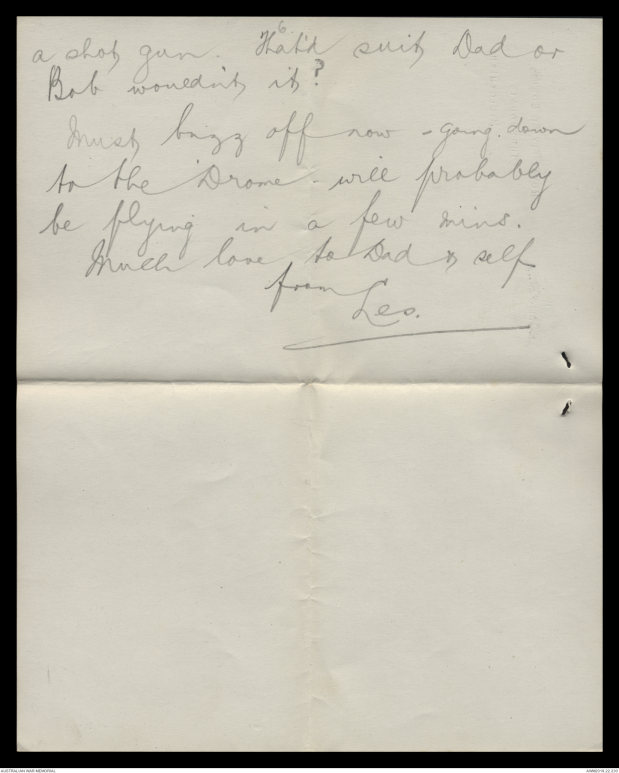 6.
a shot gun. That'd suit Dad or
Bob wouldn't it?
Must buzz off now - going down
to the 'Drome - will probably
be flying in a few mins.
Much love to Dad & self
from
Les.
AUSTRALIAN WAR MEMORIAL